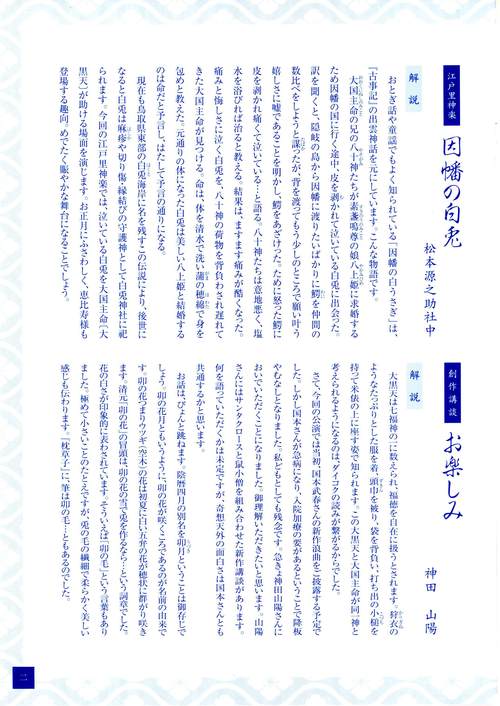 江戸里神楽
因幡の白兎
松本源之助社中
解説
おとぎ話や童謡でもよく知られている「因幡の白うさぎ」は、
『古事記』の出雲神話を元にしています。こんな物語です。
大国主命の兄の八十神たちが素盞鳴尊の娘八上姫に求婚する
ため因幡の国に行く途中、皮を剥がれて泣いている兎に出会った。
訳を聞くと、隠岐の島から因幡に渡りたいばかりに鰐を仲間の
数比べをしようと謀ったが、背を渡ってもう少しのところで願い叶う
嬉しさに嘘であることを明かし、鰐をあざけった。ために怒った鰐に
皮を剥かれ痛くて泣いている―と語る。八十神たちは意地悪く、塩
水を浴びれば治ると教える。結果は、ますます痛みが酷くなった。
痛みと悔しさに泣く白兎を、八十神の荷物を背負わされ遅れて
きた大国主命が見つける。命は、体を清水で洗い蒲の穂綿で身を
包めと教えた。元通りの体になった白兎は美しい八上姫と結婚する
のは命だと予言し、はたして予言の通りになる。
現在も鳥取県東部の白兎海岸に名を残すこの伝説により、後世に
なると白兎は麻疹や切り傷、縁結びの守護神として白兎神社に祀
られます。今回の江戸里神楽では、泣いている白兎を大国主命(大
黒天)が助ける場面を演じます。お正月にふさわしく、恵比寿様も
登場する趣向。めでたく賑やかな舞台になることでしょう。
創作講談
お楽しみ
神田 山陽
解説
大黒天は七福神の一に数えられ、福徳を自在に扱うとされます。狩衣の
ようなたっぷりとした服を着、頭巾を被り、袋を背負い、打ち出の小槌を
持って米俵の上に座す姿で知られます。この大黒天と大国主命が同一神と
考えられるようになるのは、ダイコクの読みが繋がるからでした。
さて、今回の公演では当初、国本武春さんの新作浪曲をご披露する予定で
した。しかし国本さんが急病になり、入院加療の要があるということで降板
やむなしとなりました。私どもとしても残念です。急きょ神田山陽さんに
おいでいただくことになりました。御理解いただきたいと思います。山陽
さんにはサンタクロースと鼠小僧を組み合わせた新作講談があります。
何を語っていただくかは未定ですが、奇想天外の面白さは国本さんとも
共通するかと思います。
お話は、ぴょんと跳ねます。陰暦四月の別名を卯月ということは御存じで
しょう。卯の花月ともいうように、卯の花が咲くころであるのが名前の由来で
す。卯の花つまりウツギ(空木)の花は初夏に白い五弁の花が穂状に群がり咲き
ます。清元「卯の花」の冒頭は、卯の花の雪で兎を作るなら…という詞章でした。
花の白さが印象的に表わされています。そういえば「卯の毛」という言葉もあり
ました。極めて小さいことのたとえですが、兎の毛の繊細で柔らかく美しい
感じも伝わります。『枕草子』に、筆は卯の毛…ともあるのでした。
二